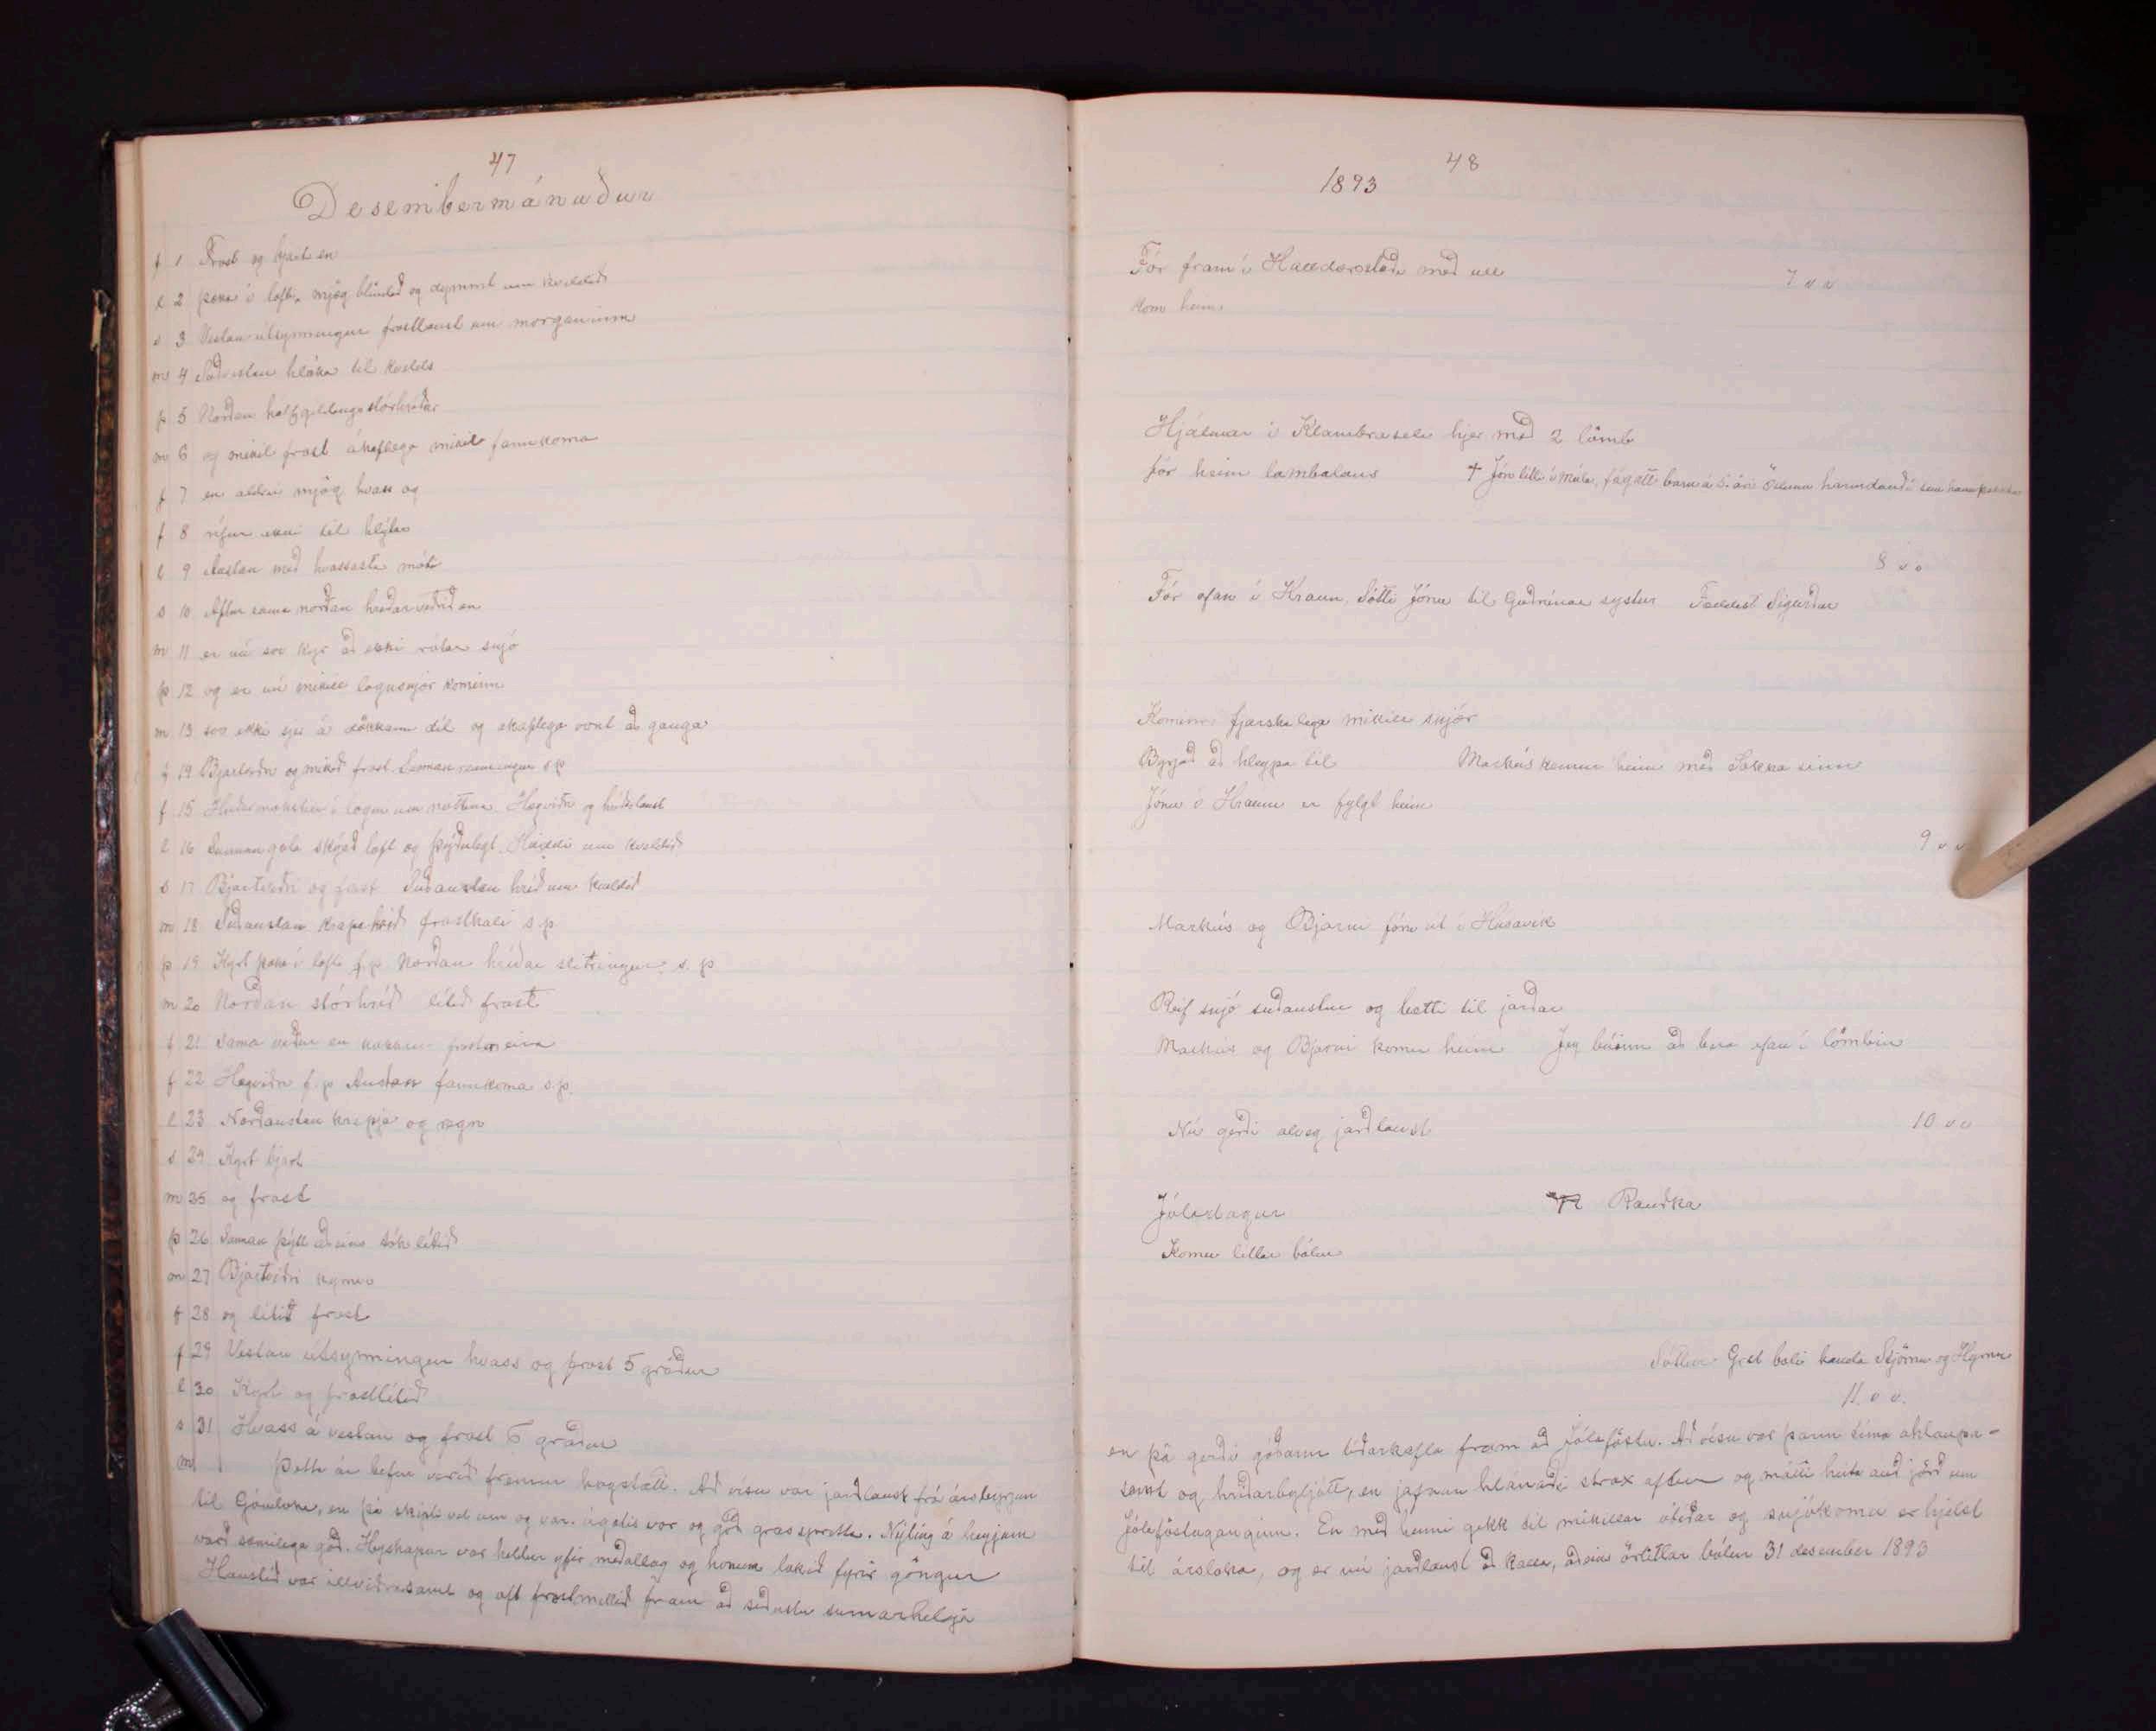 47
Desembermánuður
f 1 Frost og bjart en
l 2 þoka í lofti, mjög blindað og dymmt um kveldið
s 3 Vestan útsynningur frostlaust um morguninn
m 4 Suðvestan hláka til kvelds
þ 5 Norðan hálfgildings stórhríðar
m 6 og mikil frost ákaflega mikil fannkoma
f 7 en aldrei mjög hvass og
f 8 rífur ekki til hlýtar
l 9 Austan með hvassasta móti
s 10 Aftur sama norðan hríðar veðrið en
m 11 er nú svo kyr að ekki rótar snjó
þ 12 og er nú mikill lognsnjór kominn
m 13 svo ekki sjer á dökkann díl og akaflega vont að ganga
f 14 Bjartviðri og mikið frost. Sunnan renningur s.p
f 15 í logni um nóttina. Hægviðri og hríðarlaust
l 16 Sunnan gola skýjað loft og þýðulegt um kveldið
s 17 Bjartviðri og frost Suðaustan hríð um kveldið
m 18 Suðaustan krapahríð frostkali s p
þ 19 Kyrt þoka í lofti f.p Norðan hríðar slitringur s. p
m 20 Norðan stórhríð lítið frost
f 21 Sama veður en frostmeira
f 22 Hægviðri f.p Austan fannkoma s.p.
l 23 Norðaustan krepja og regn
s 24 Kyrt bjart
m 25 og frost
þ 26 Sunnan þýtt aðeins tók lítið
m 27 Bjartviðri kyrrur
f 28 og lítið frost
f 29 Vestan útsynningur hvass og frost 5 gráður
l 30 Kyrt og frostlítið
s 31 Hvass á vestan og frost 6 gráður
Þetta ár hefur verið fremur hagstætt. Að vísu var jarðlaust frá ársbyrjun
til Góuloka, en þá skipti vel um og var ágætis vor og góð grasspretta. Nýting á heyjum
varð sæmilega góð. Heyskapur var heldur yfir meðallag og honum lokið fyrir göngur
Haustið var illviðrasamt og oft frostmikið fram að síðustu sumarhelgi
48
1893
Fór fram í Halldórsstaði með ull 7 v v
Kom heim
Hjálmar í Klambraseli hjer með 2 lömb
fór heim lambalaus † Jón litli í Múla, fágætt barn á 5. ári Öllum harmdauði sem hann þekktu
8 v v
Fór ofan í Hraun, Sótti Jónu til Guðrúnar systur Fæddist Sigurður
Kominn fjarskalega mikill snjór
Byrjað að hleypa til Markús kemur heim með Sokka sinn
Jónu í Hraun er fylgt heim
9 v v
Markús og Bjarni fóru út í Húsavík
Reif snjó suðaustur og bætti til jarðar
Markús og Bjarni komu heim Jeg búinn að bera ofan í lömbin
Nú gerði alveg jarðlaust 10 v v
Jóladagur Rauðka
Komu litlar bólur
11. v v.
en þá gerði góðann tíðarkafla fram að Jólaföstu. Að vísu var þann tíma áhlaupa-
samt og hríðarbyljótt, en jafnan hlánaði strax aftur og mátti heita auð jörð um
Jólaföstuganginn. En með henni gekk til mikillar ótíðar og snjókoma er hjelst
til ársloka, og er nú jarðlaust að kalla, aðeins örlitlar bólur 31 desember 1893